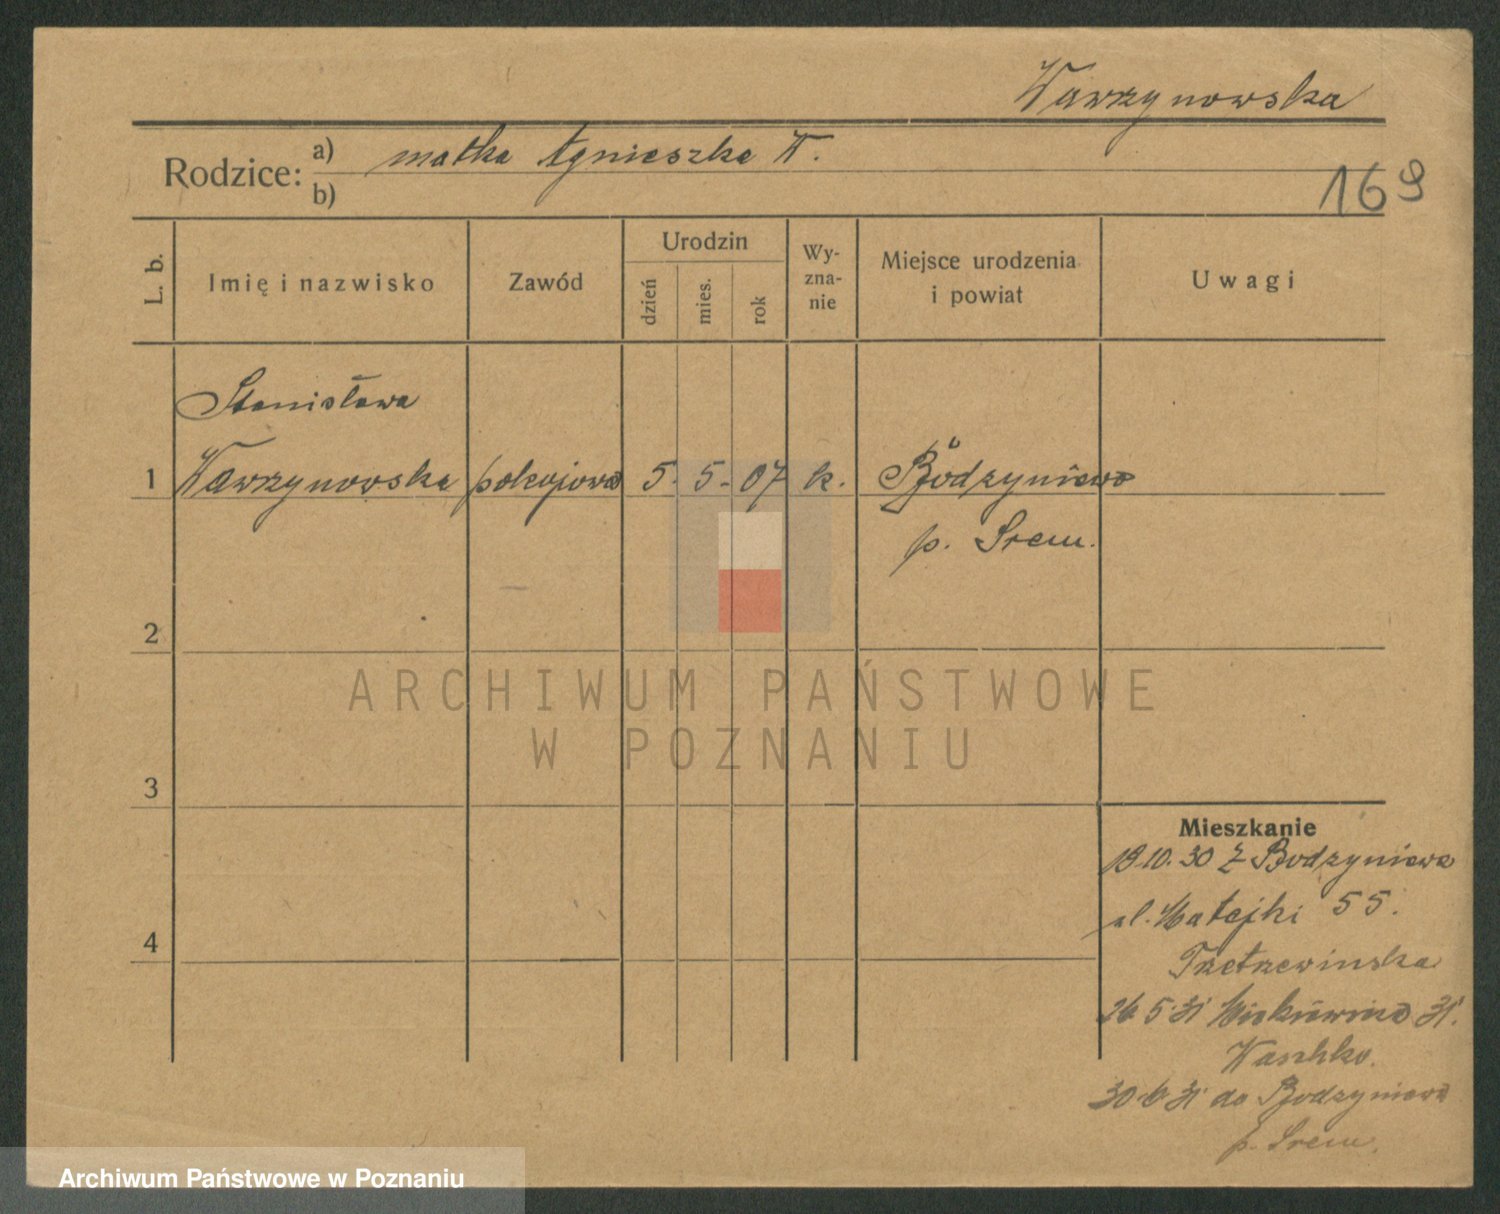 Wawrzynowska
Rodzice: a) matka Agnieszka W.
b)
169
L. b.
Imię i nazwisko
Zawód
Urodzin
dzień
mies.
rok
Wy-
zna-
nie
Miejsce urodzenia
i powiat
Uwagi
Stanisława
1 Wawrzynowska pokojowa 5. 5. 07 k. Bodzyniewo
p. Srem.
2
ARCHIWUM PAŃSTWOWE
W POZNANIU
3
Mieszkanie
10.30 z Bodzyniewa
ul. Matejki 55.
4
26 5 31 31.
30 6 31 do Bodzyniewa
p. Srem.
Archiwum Państwowe w Poznaniu